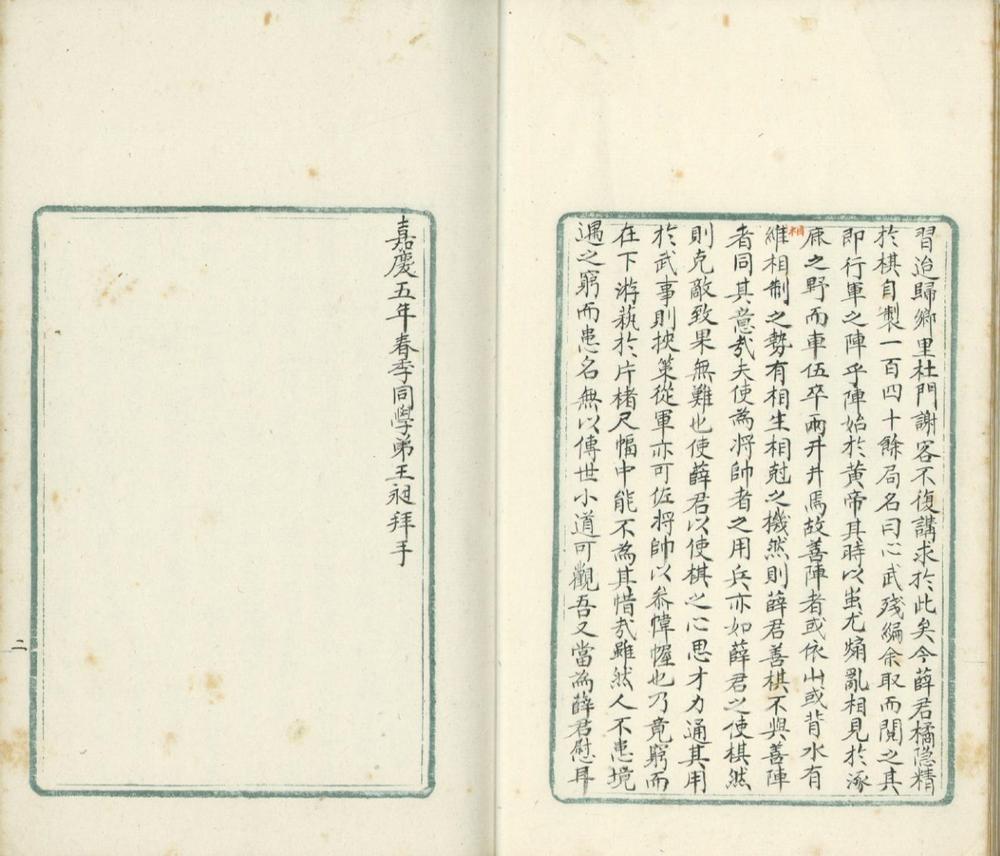 習迨歸鄉里杜門謝客不復講求於此矣今薛君橘隱精
於棋自製一百四十餘局名曰心武殘編余取而閱之其
即行軍之陣乎陣始於黃帝其時以蚩尤煽亂相見於涿
鹿之野而車伍卒兩井井焉故善陣者或依山或背水有
相
維相制之勢有相生相尅之機然則薛君善棋不與善陣
者同其意哉夫使為將帥者之用兵亦如薛君之使棋然
則克敵致果無難也使薛君以使棋之心思才力通其用
於武事則挾策從軍亦可佐將帥以參幃幄也乃竟窮而
在下游蓺於片楮尺幅中能不為其惜哉雖然人不患境
遇之窮而患名無以傳世小道可觀吾又當為薛君慰旹
嘉慶五年春季同學弟王昶拜手
二